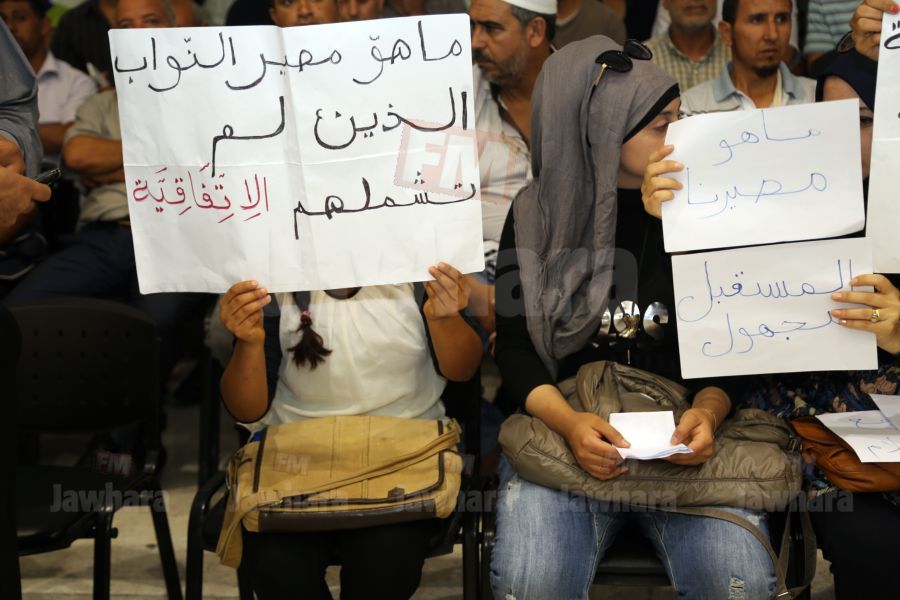 ما هوّ مصير النّواب
الذين لم
تشملهم الاِتّفَاقِيَّة
ماهو
مصيرنا
المستقبل
مجهول
Jawhara
FM
Jawhara
FM
Jawhara
FM
Jawhara